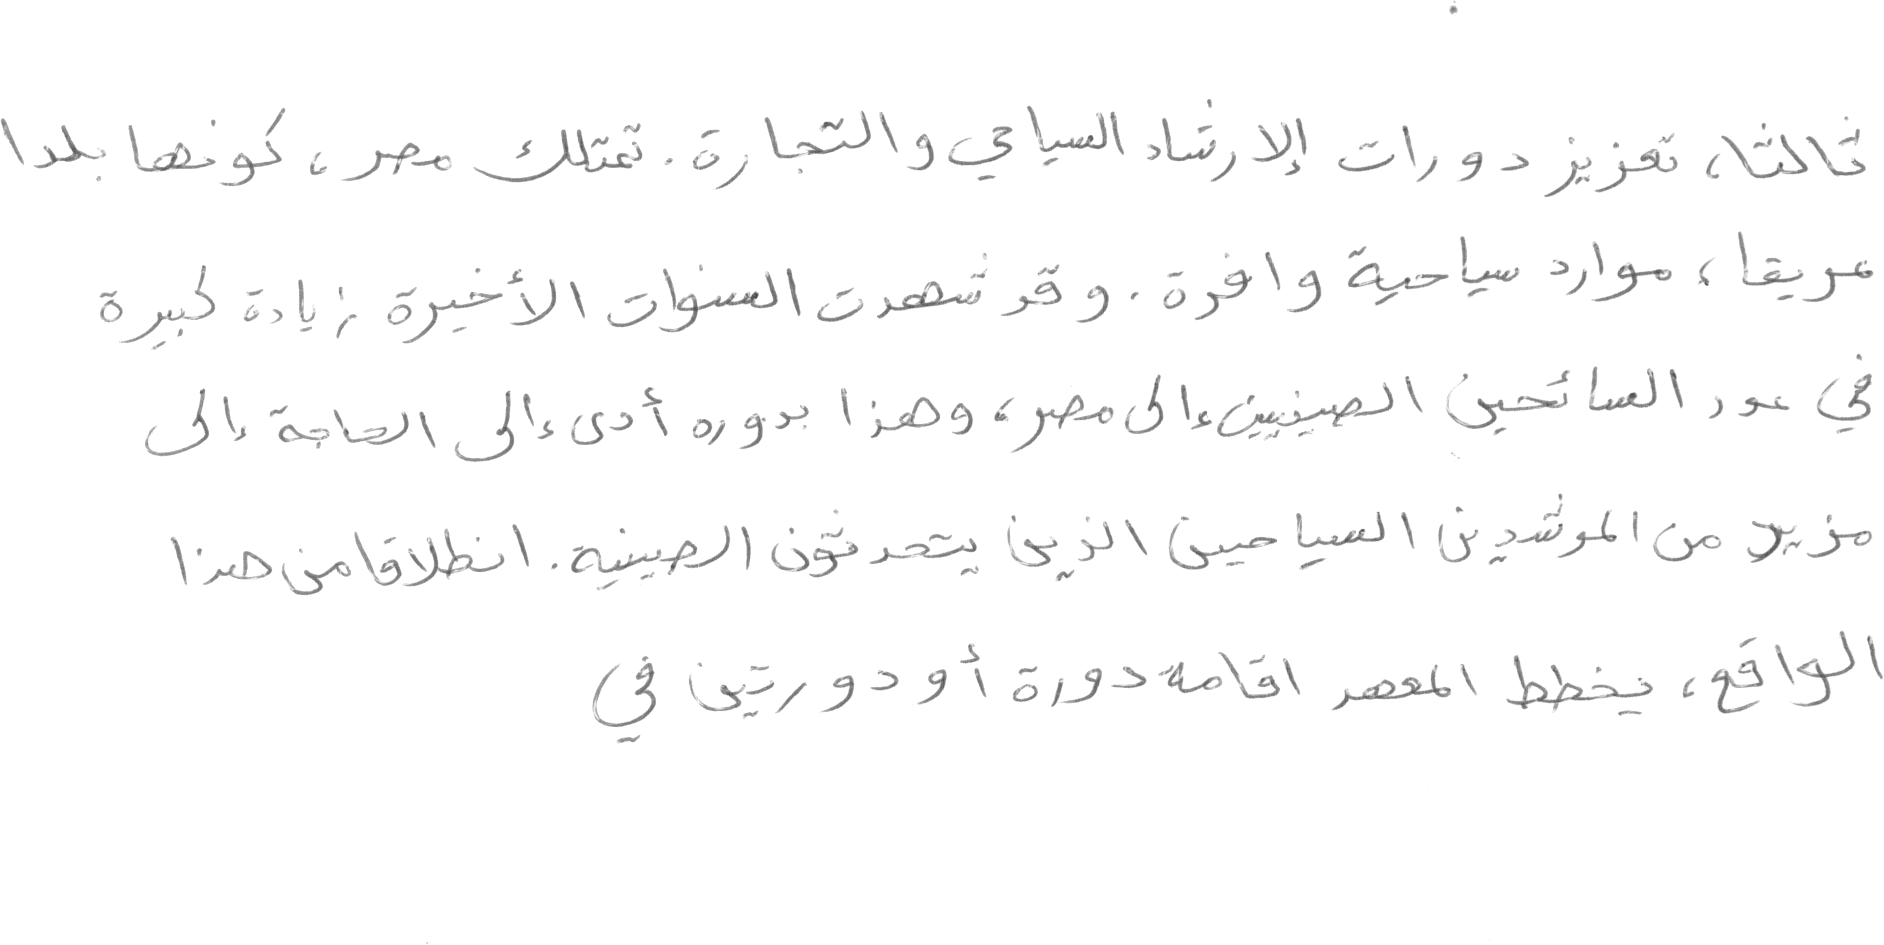 ثالثا، تعزيز دورات إلارشاد السياحي والتجارة. تمتلك مصر، كونها بلدا
عريقا، موارد سياحية وافرة. وقد شهدت السنوات الأخيرة زيادة كبيرة
في عدد السائحين الصينيين إلى مصر، وهذا بدوره أدى إلى الحاجة إلى
مزيد من المرشدين السياحيين الذين يتحدثون الصينية. انطلاقا من هذا
الواقع، يخطط المعهد اقامة دورة أو دورتين في